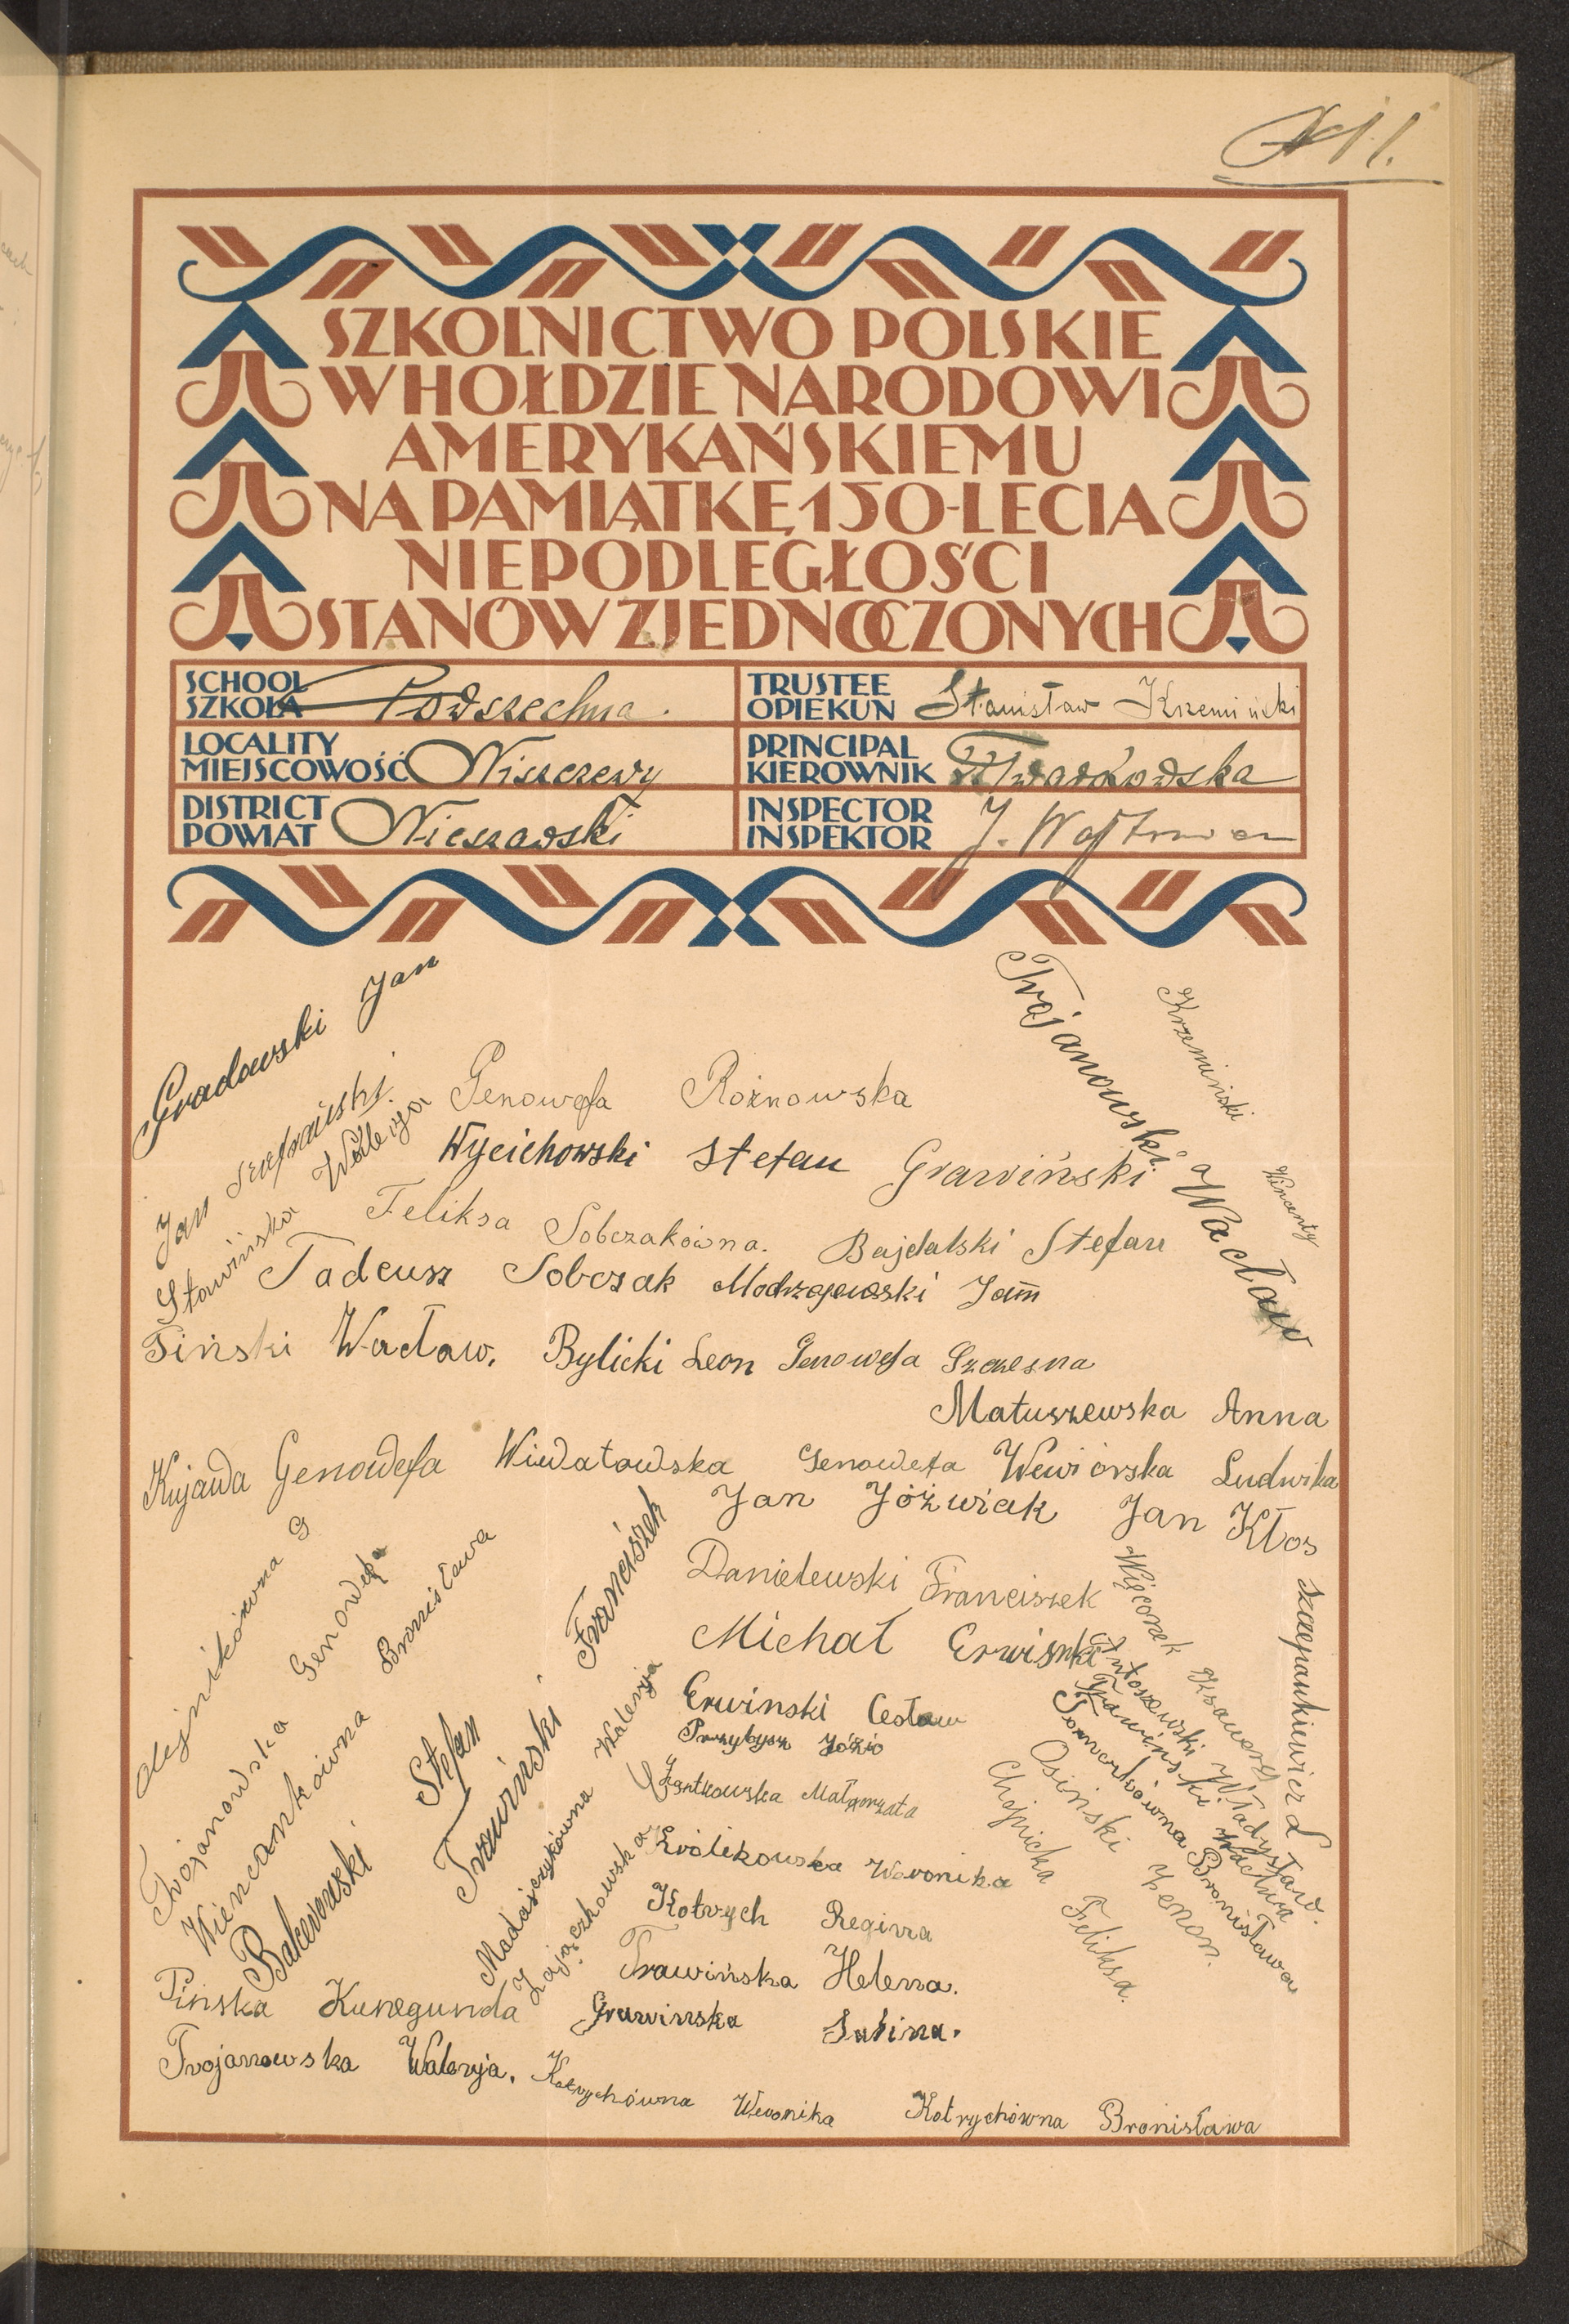 SZKOLNICTWO POLSKIE
W HOŁDZIE NARODOWI
AMERYKAŃSKIEMU
NA PAMIĄTKĘ 150-LECIA
NIEPODLEGŁOŚCI
STANÓW ZJEDNOCZONYCH
SCHOOL
SZKOŁA Powszechna.
TRUSTEE
OPIEKUN Stanisław Krzemiński
LOCALITY
MIEJSCOWOŚĆ Niszczewy
PRINCIPAL
KIEROWNIK
DISTRICT
POWIAT Nieszawski
INSPECTOR
INSPEKTOR J.
Gradowski Jan
Trojanowski Wacław
Krzemiński Wincenty
Jan
Stawińska Walerja
Genowefa Rożnowska
Wycichowski Stefan Grawiński
Feliksa Sobczakówna. Bajdalski Stefan
Tadeusz Sobczak Modrzejewski Jan
Piński Wacław. Bylicki Leon Genowefa Szczesna
Matuszewska Anna
Kujawa Genowefa Wiwatowska Genowefa Wewiórska Ludwika
Jan Jóźwiak Jan Kłos
olejnikówna G
Trojanowska Genowefa
Wiencankówna Bronisława
Bakerowski Stefan
Trawiński Franciszek
Madajczykówna Walerja
Zajączkowska
Danielewski Franciszek
Michał Erwiński
Erwinski Cesław
Przybysz Józio
Małgorzata
Królikowska Weronika
Kotrych Regina
Trawińska Helena.
Grawinska Sabina.
Więconek Ksawery
Szczepankiewicz L
Antoszewski Władysław.
Trawiński Wacława
Bronisława
Osiński Zenon.
Chojnicka Feliksa.
Pińska Kunegunda
Trojanowska Walerja. Kotrychówna Weronika Kotrychówna Bronisława